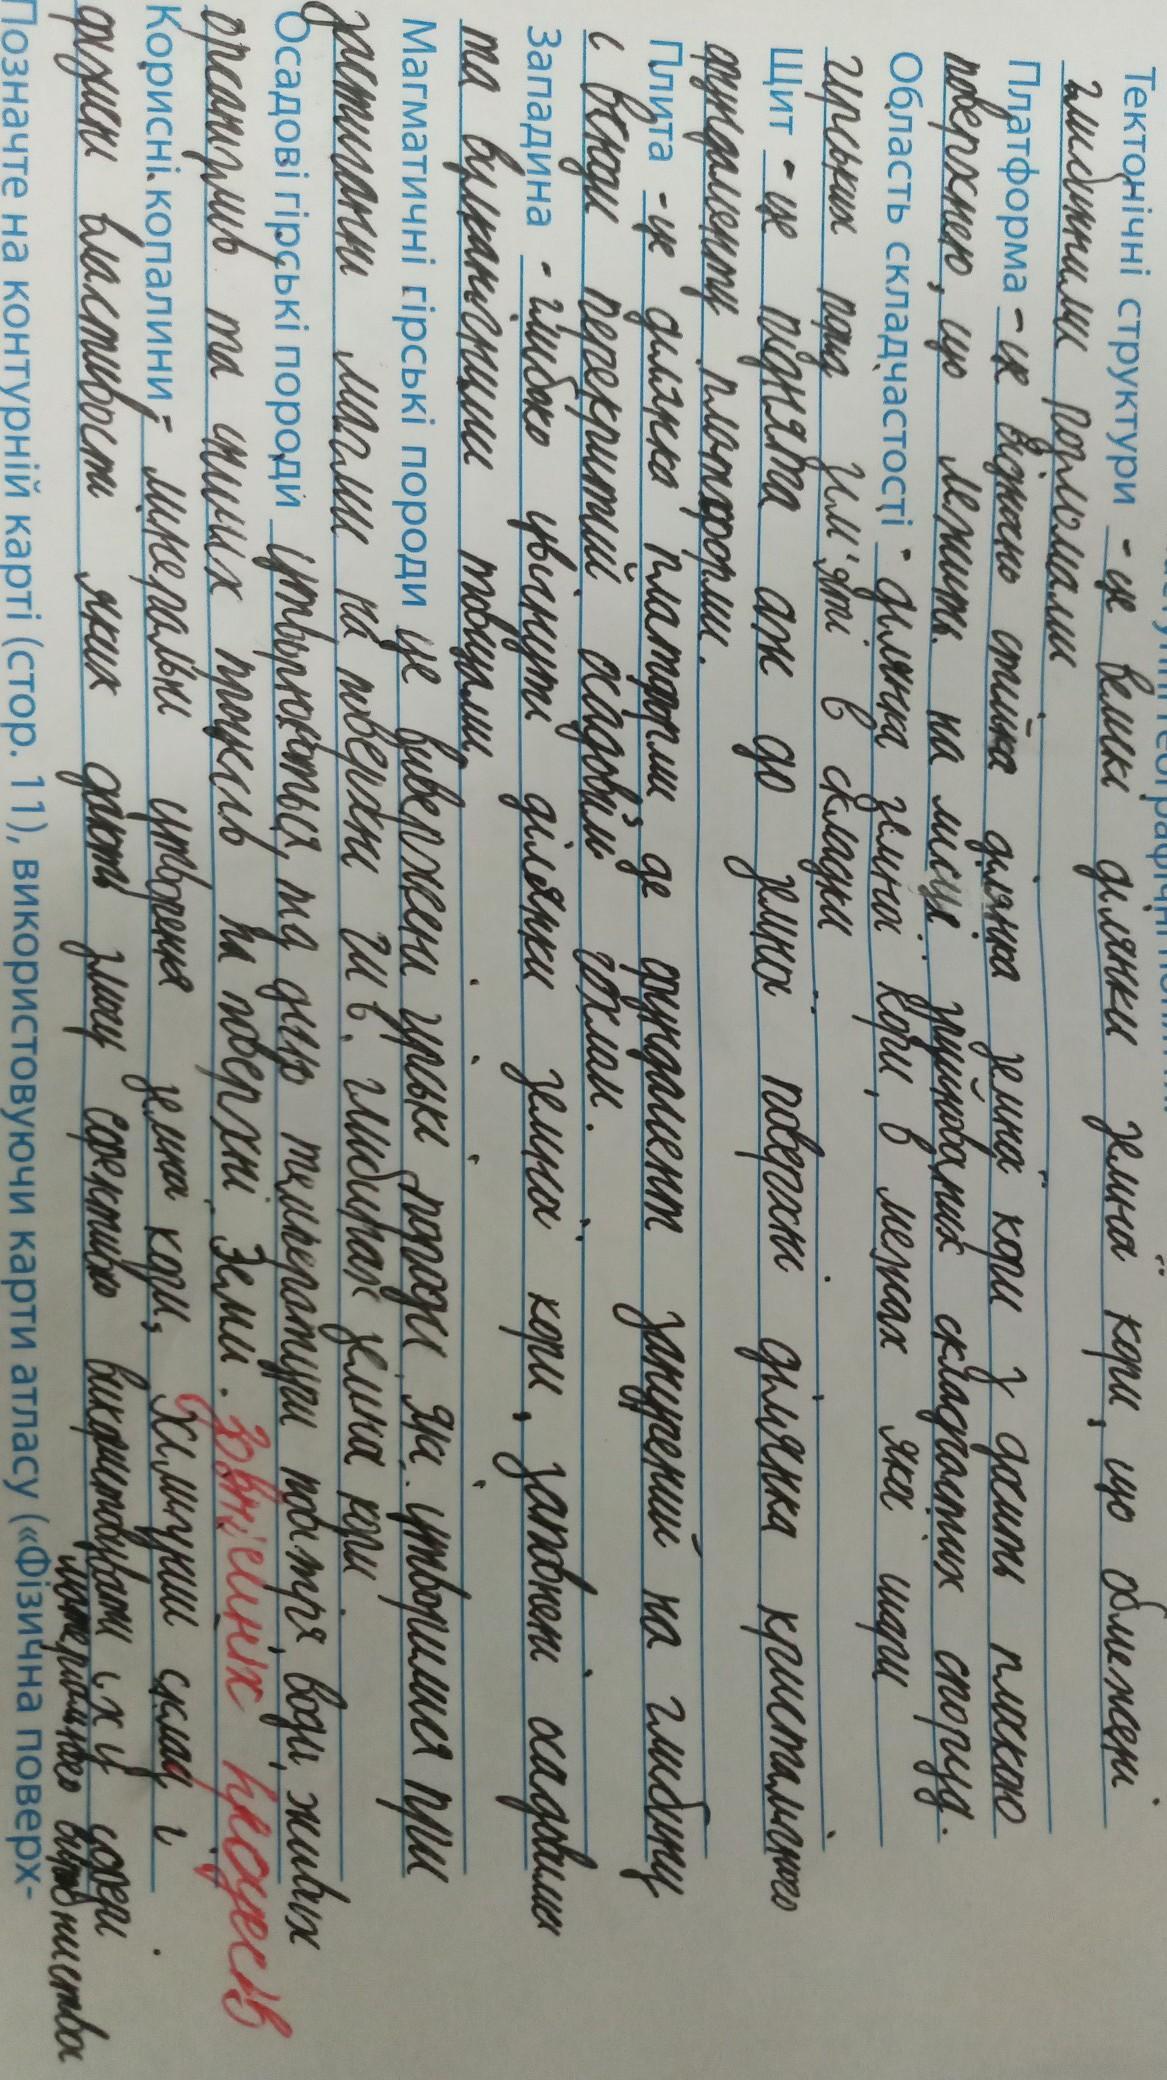 Тектонічні структури - це великі ділянки земної кори, що обмежені
глибинними розломами
Платформа - це відносно стійка ділянка земної кори з досить плоскою
поверхнею, що лежить на місці зруйнованих складчастих споруд.
Область складчастості - ділянка земної кори, в межах якої шари
гірських порід зім'яті в складки
Щит - це піднята аж до земної поверхні ділянка кристалічного
фундаменту платформи.
Плита - це ділянка платформи, де фундамент занурений на глибину
і всюди перекритий осадовим чохлом.
Западина - глибоко увігнуті ділянки земної кори, заповнені осадовими
та вулканічними товщами.
Магматичні гірські породи це вивержені гірські породи, які утворилися при
застиганні магми на поверхні чи в глибинах земної кори
Осадові гірські породи утворюються, під дією температури повітря, води, живих
організмів та інших процесів на поверхні Землі. Зовнішніх процесів
Корисні копалини - мінеральні утворення земної кори, хімічний склад і
фізичні властивості яких дають змогу ефективно використовувати їх у сфері
матеріального виробництва
Позначте на контурній карті (стор. 11), використовуючи карти атласу («Фізична поверх-